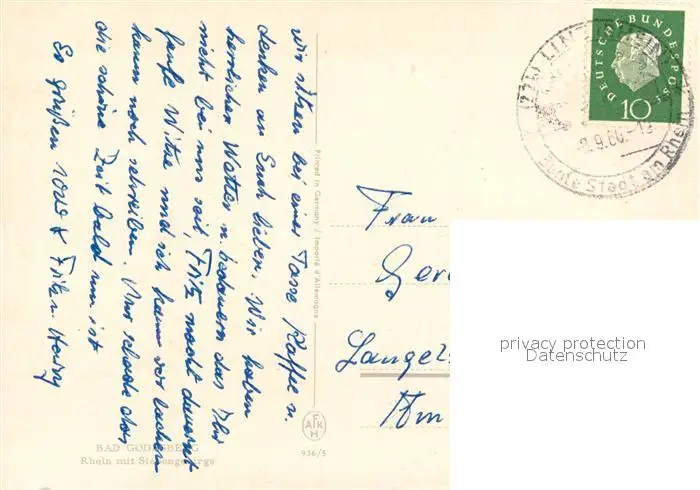 wir sitzen bei einer Tasse Kaffee u.
denken an Euch Lieben. Wir haben
herrliches Wetter u. bedauern das Ihr
nicht bei uns seit, Fritz macht dauernd
faule Witze und ich kann vor lachen
kaum noch schreiben. Nur schade das
die schöne Zeit bald um ist
Es grüßen
Fritz u.
Printed in Germany / Importé d'Allemagne
BAD GODESBERG
Rhein mit Siebengebirge
AFKH
936/5
DEUTSCHE BUNDESPOST
10
(22b) LINZ (RHEIN)
9.60.-
Bunte Stadt am Rhein
Frau
Langel
privacy protection
Datenschutz